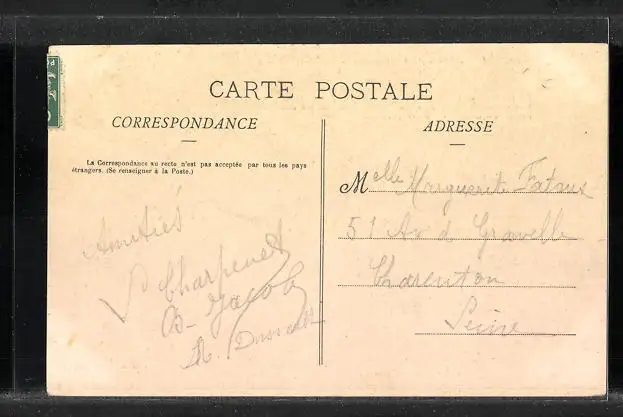 CARTE POSTALE
CORRESPONDANCE
La Correspondance au recto n'est pas acceptée par tous les pays
étrangers. (Se renseigner à la Poste.)
Amitiés
Charpenet
B. Jacob
ADRESSE
Melle Marguerite
51 Av d Gravelle
Charenton
Seine